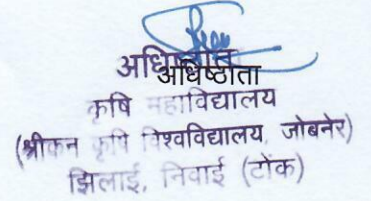 अधिष्ठाता
अधिष्ठाता
कृषि महाविद्यालय
(श्रीकन कृषि विश्वविद्यालय, जोबनेर)
झिलाई, निवाई (टोंक)